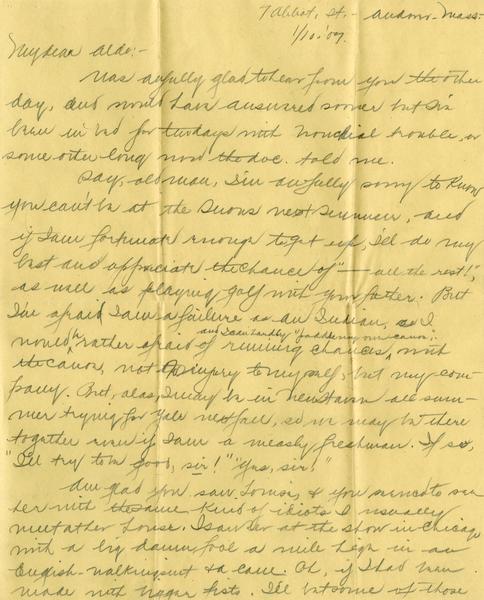 7 Abbot, St. - Andover - Mass -
1/10.'07.
My dear Aldo: -
Was awfully glad to hear from you the other
day, and would have answered sooner but I've
been in bed for two days with bronchial trouble, or
some other long word the doc. told me.
Say, old man, I'm awfully sorry to know
you can't be at the Snows next Summer, and
if I am fortunate enough to get up, I'll do my
best and appreciate the chance of "— all the rest!",
as well as playing golf with your father. But
I'm afraid I am a failure as an Indian, as I
and I can hardly "paddle my own canoe;"
would rather afraid of running chances, with
the canoe, not the injury to myself, but my com-
pany. But, alas, I may be in town all sum-
mer trying for Yale next fall, so we may be there
together even if I am a measly freshman. If so,
"I'll try to be good, sir!" "Yes, sir!"
Am glad you saw Louise, & you seemed to see
her with the same kind of idiots I usually
meet at her house. I saw her at the show in Chicago
with a big damn fool a mile high in an
English-walking suit & a cane. Oh, if I had been
made with bigger fists. I'll bet some of those